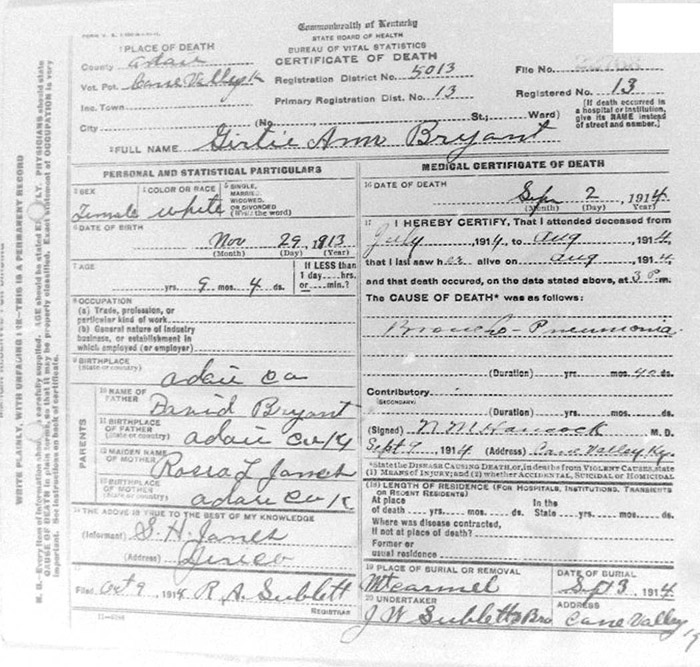 Commonwealth of Kentucky
STATE BOARD OF HEALTH
BUREAU OF VITAL STATISTICS
CERTIFICATE OF DEATH
1 PLACE OF DEATH
County Adair
Vot. Pct. Cane Valley K
Inc. Town
City
Registration District No. 5013
Primary Registration Dist. No. 13
(No. St.; Ward)
File No.
Registered No. 13
[If death occurred in
a hospital or institution,
give its NAME instead
of street and number.]
2 FULL NAME Girtie Ann Bryant
PERSONAL AND STATISTICAL PARTICULARS
3 SEX
Female
4 COLOR OR RACE
white
5 SINGLE,
MARRIED,
WIDOWED,
OR DIVORCED
(Write the word)
6 DATE OF BIRTH
Nov 29, 1913
(Month) (Day) (Year)
7 AGE
yrs. 9 mos. 4 ds.
If LESS than
1 day....hrs.
or....min.?
8 OCCUPATION
(a) Trade, profession, or
particular kind of work
(b) General nature of industry
business, or establishment in
which employed (or employer)
9 BIRTHPLACE
(State or country)
adair co
PARENTS
10 NAME OF
FATHER
David Bryant
11 BIRTHPLACE
OF FATHER
(State or country)
adair co Ky
12 MAIDEN NAME
OF MOTHER
Rossa L Janes
13 BIRTHPLACE
OF MOTHER
(State or country)
adair co K
14 THE ABOVE IS TRUE TO THE BEST OF MY KNOWLEDGE
(Informant) S. H. Janes
(Address)
15
Filed Oct 9, 1914 R. A. Sublett
REGISTRAR
MEDICAL CERTIFICATE OF DEATH
16 DATE OF DEATH
Sep 2, 1914
(Month) (Day) (Year)
17 I HEREBY CERTIFY, That I attended deceased from
July, 1914, to aug, 1914,
that I last saw her alive on aug, 1914,
and that death occured, on the date stated above, at 3 P.m.
The CAUSE OF DEATH* was as follows:
Broncho-Pneumonia
(Duration) yrs. mos. 40 ds.
Contributory
(SECONDARY)
(Duration) yrs. mos. ds.
(Signed) N. M. Hancock M. D.
Sept 9, 1914 (Address) Cane Valley, Ky.
*State the DISEASE CAUSING DEATH, or, in deaths from VIOLENT CAUSES, state
(1) MEANS OF INJURY; and (2) whether ACCIDENTAL, SUICIDAL or HOMICIDAL
18 LENGTH OF RESIDENCE (FOR HOSPITALS, INSTITUTIONS, TRANSIENTS
OR RECENT RESIDENTS)
At place In the
of death yrs. mos. ds. State yrs. mos. ds.
Where was disease contracted,
if not at place of death?
Former or
usual residence
19 PLACE OF BURIAL OR REMOVAL
Mt carmel
DATE OF BURIAL
Sept 3, 1914
20 UNDERTAKER
J W Subletts Bro
ADDRESS
Cane Valley
WRITE PLAINLY, WITH UNFADING INK—THIS IS A PERMANENT RECORD